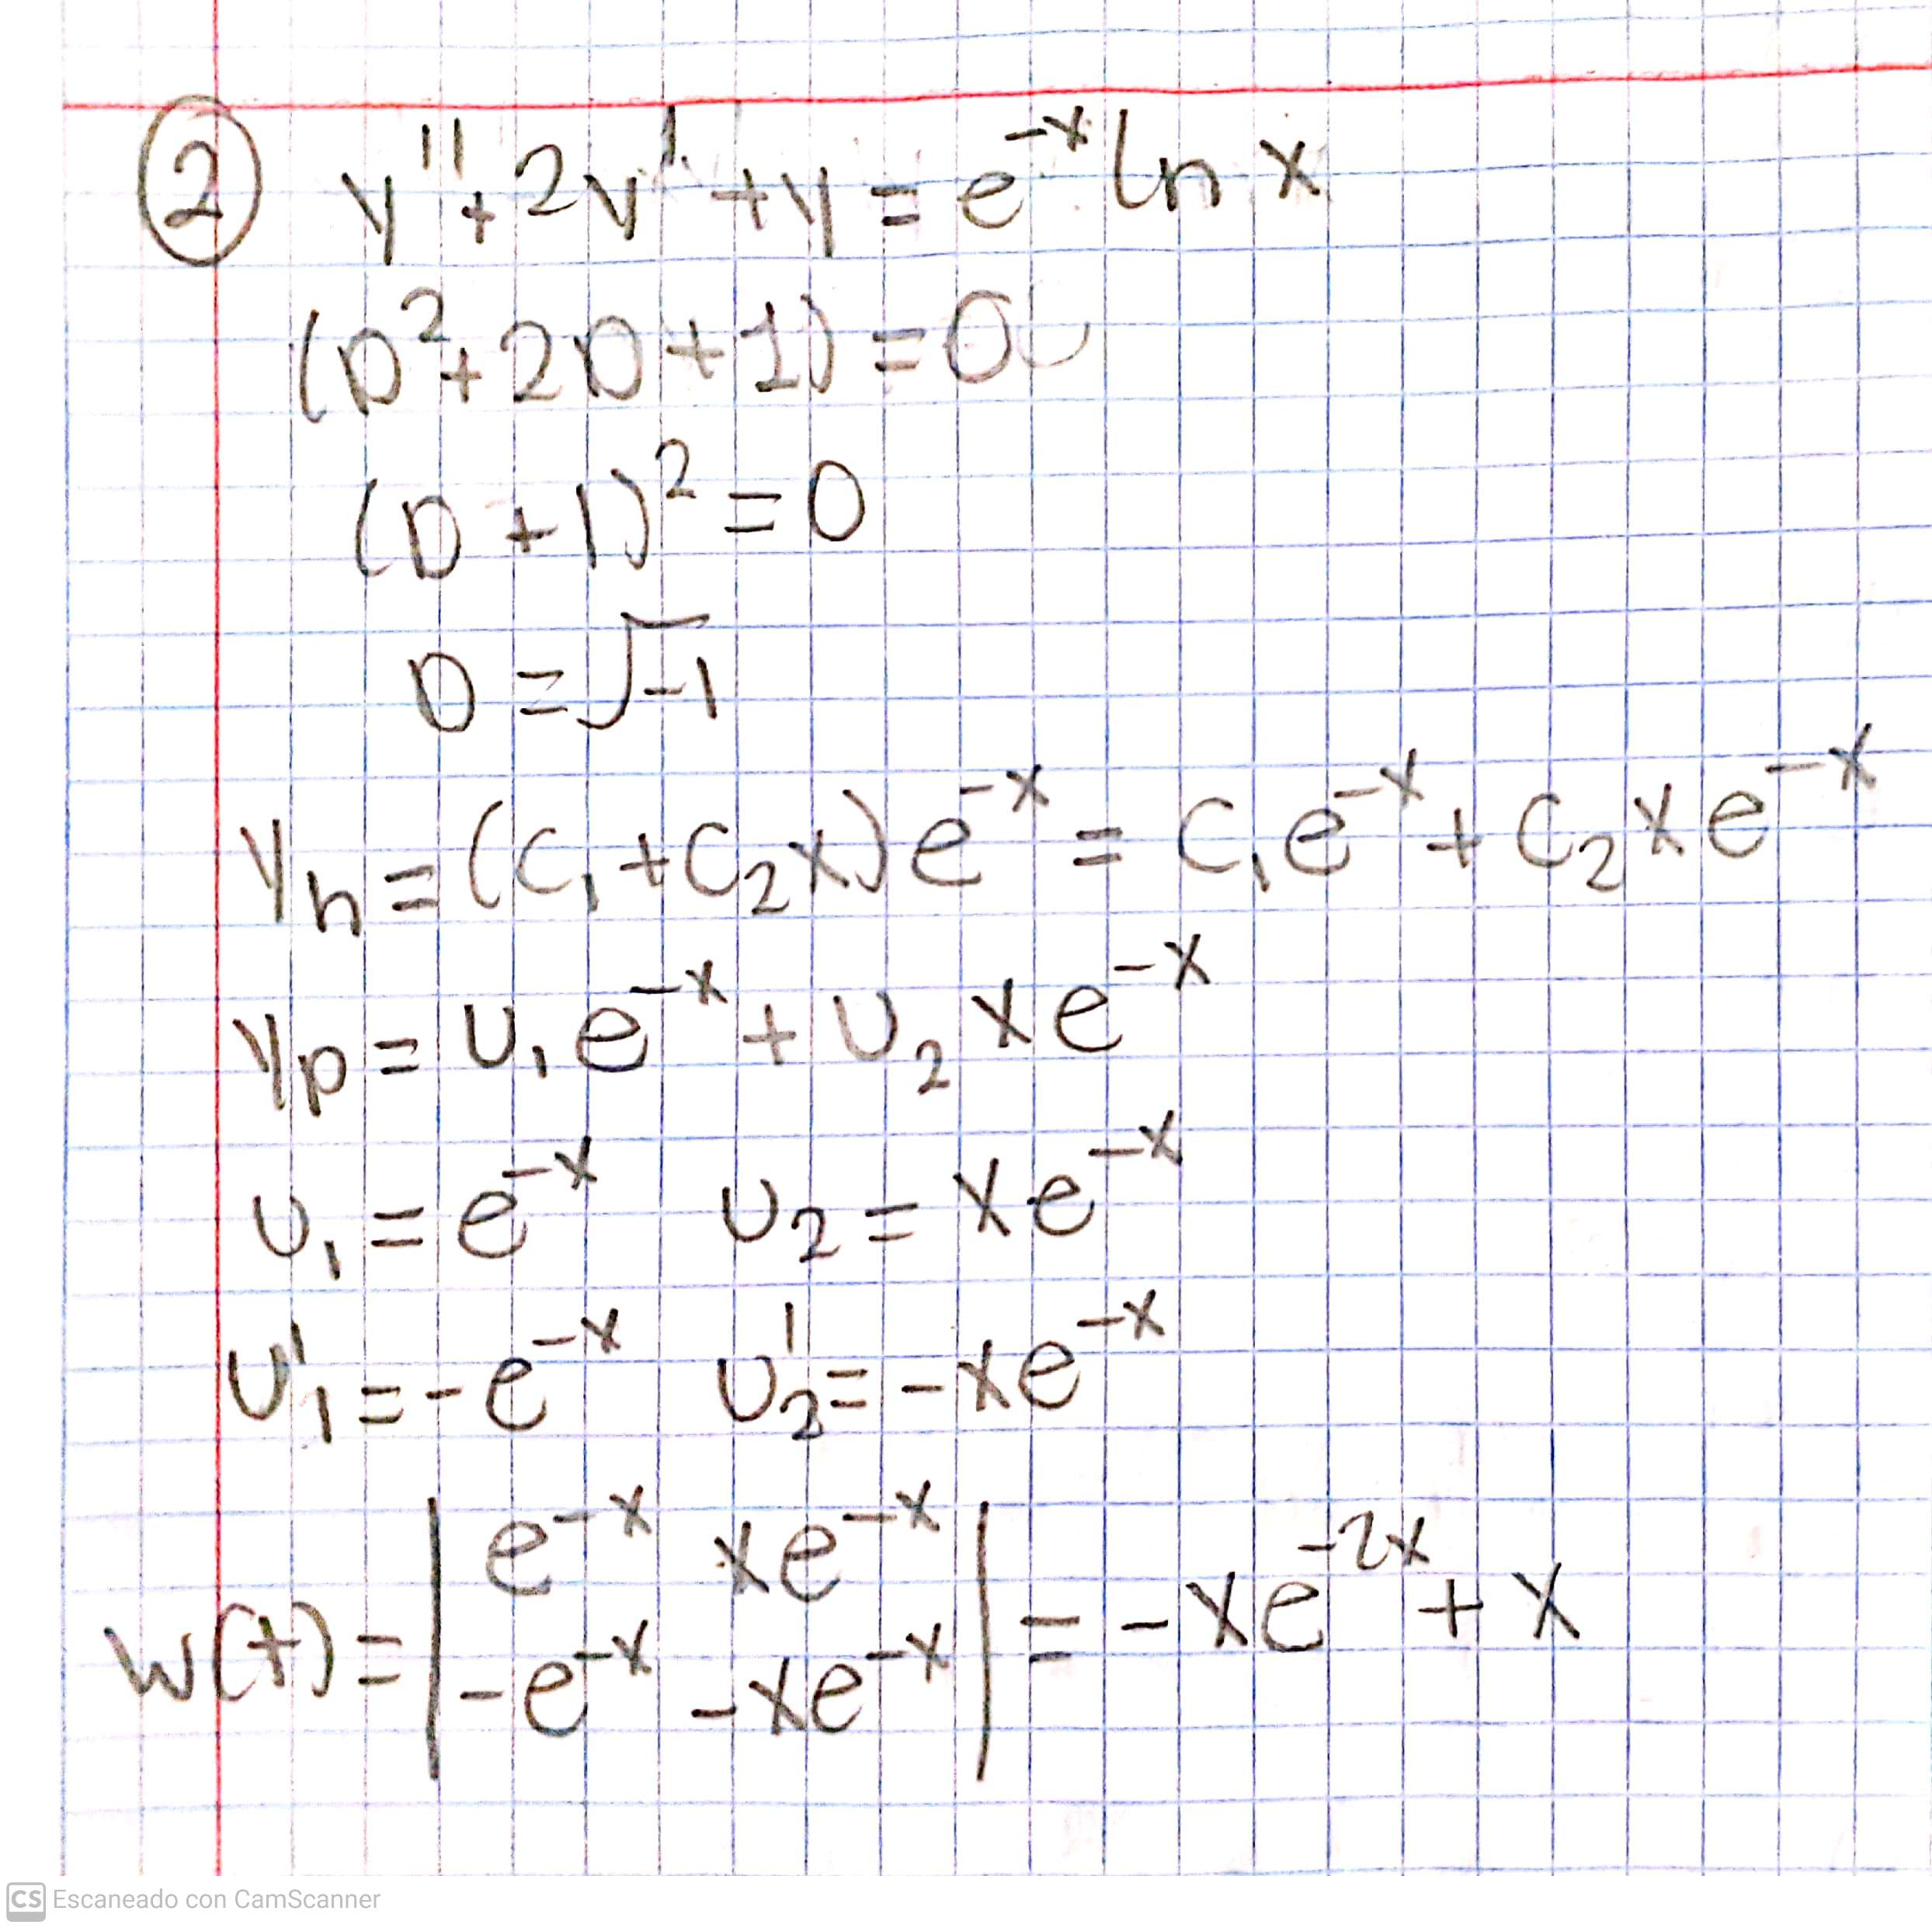 ② y'' + 2y' + y = e^{-x} ln x
(D² + 2D + 1) = 0
(D + 1)² = 0
D = √-1
y_h = (C₁ + C₂x)e^{-x} = C₁e^{-x} + C₂xe^{-x}
y_p = U₁e^{-x} + U₂xe^{-x}
U₁ = e^{-x} U₂ = xe^{-x}
U'₁ = -e^{-x} U'₂ = -xe^{-x}
W(t) = | e^{-x} xe^{-x} |
| -e^{-x} -xe^{-x} | = -xe^{-2x} + x
CS Escaneado con CamScanner